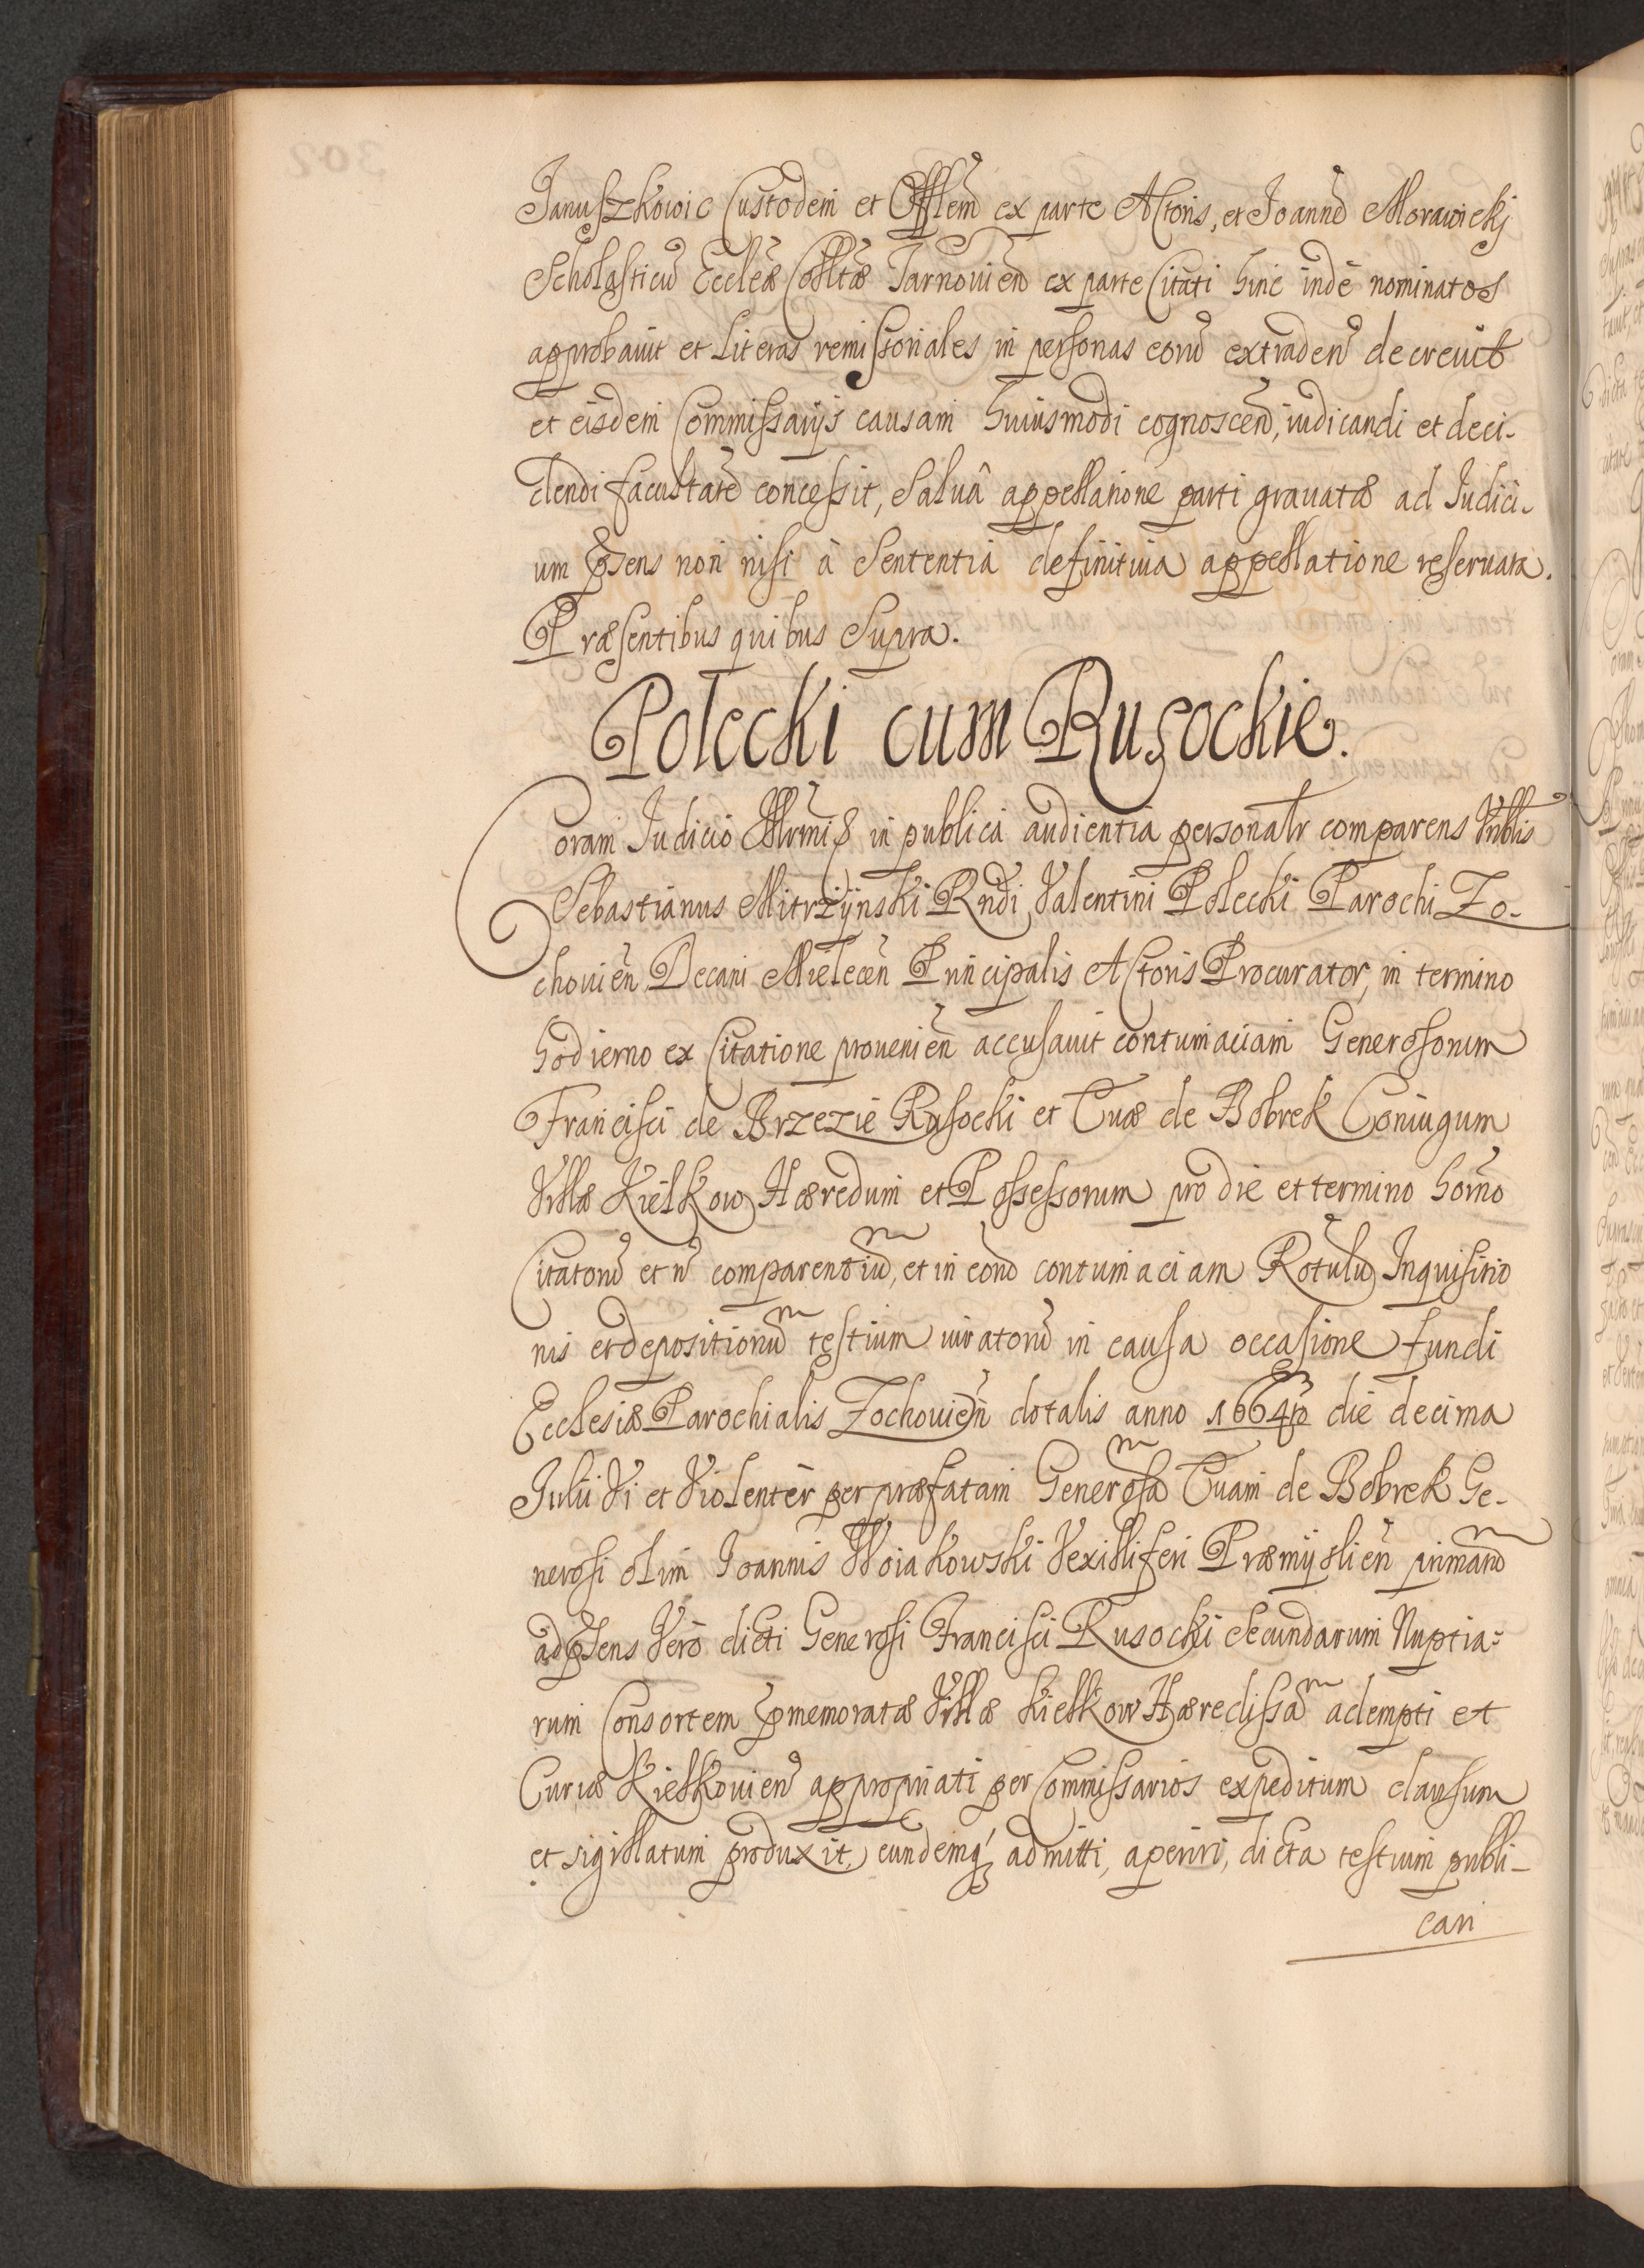 Januszkowic Custodem et Offlem ex parte Actoris, et Joannẽ Morawickj
Scholasticũ Eccleæ Colltæ Tarnouien̄ ex parte Citati hinc inde nominatos
approbauit et Literas remissoriales in personas eorũ extraden̄ decreuit
et eisdem Commissarijs causam huiusmodi cognoscen̄, iudicandi et deci-
dendi facultatẽ concessit, Saluâ appellatione parti grauatæ ad Iudici-
um pñsens non nisi à Sententia definitiua appellatione reseruata.
Præsentibus quibus Supra.
Polecki cum Rusockie.
Coram Iudicio Illrmiȩ in publica audientia personalr comparens Nblis
Sebastianus Mitrzijnski Rndi Valentini Polecki Parochi Zo-
chouien̄ Decani Mielecen̄ Principalis Actoris Procurator, in termino
hodierno ex Citatione prouenien̄ accusauit contumaciam Generosorum
Francisci de Brzezie Rusocki et Euæ de Bobrek Coniugum
Villæ Kiełkow Hæredum et Possessorum pro die et termino horno
Citatorũ et n̄ comparentiũ, et in eorũ contumaciam Rotulũ Inquisitio
nis et depositionũ testium iuratorũ in causa occasione fundi
Ecclesiæ Parochialis Zochouien̄ dotalis anno 1664to die decima
Iulii Vi et Violenter per præfatam Generosã Euam de Bobrek Ge-
nerosi olim Joannis Woiakowski Vexilliferi Præmijslien̄ primarũ
ad pñsens Vero dicti Generosi Francisci Rusocki Secundarum Nuptia-
rum Consortem pmemoratæ Villæ Kiełkow Hæredissã adempti et
Curiæ Kiełkouien̄ appropriati per Commissarios expeditum clausum
et sigillatum produxit, eundemq̃ admitti, aperiri, dicta testium publi-
cari